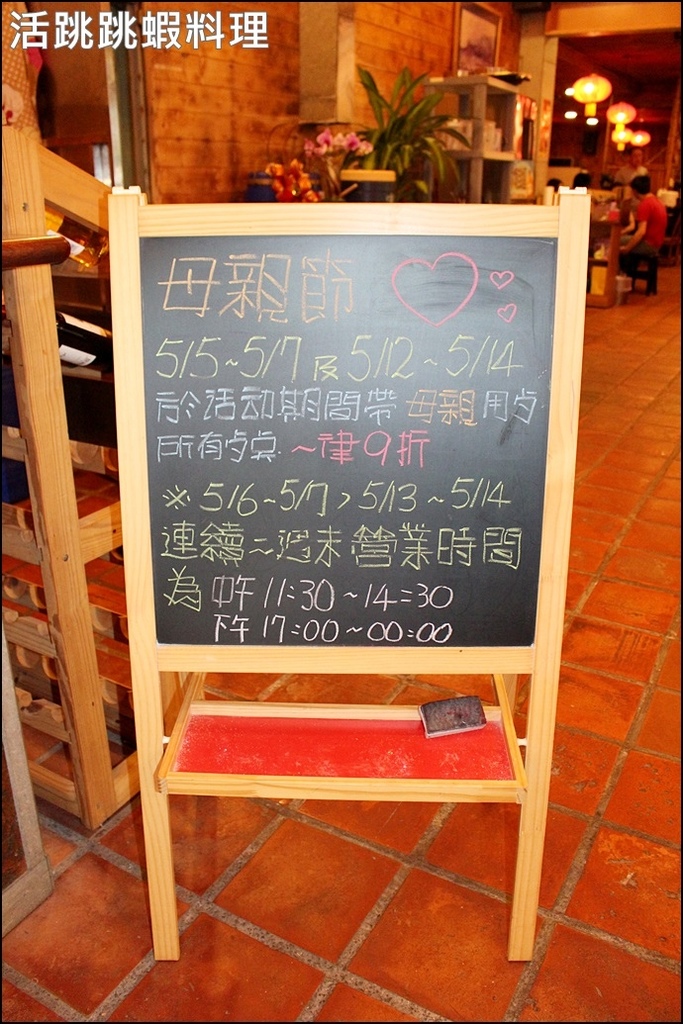 活跳跳蝦料理
母親節
5/5~5/7 及 5/12~5/14
於活动期間帶母親用点
所有点 ~律9折
※ 5/6~5/7、5/13~5/14
連續二週末營業時間
為 中午 11:30~14:30
下午 17:00~00:00